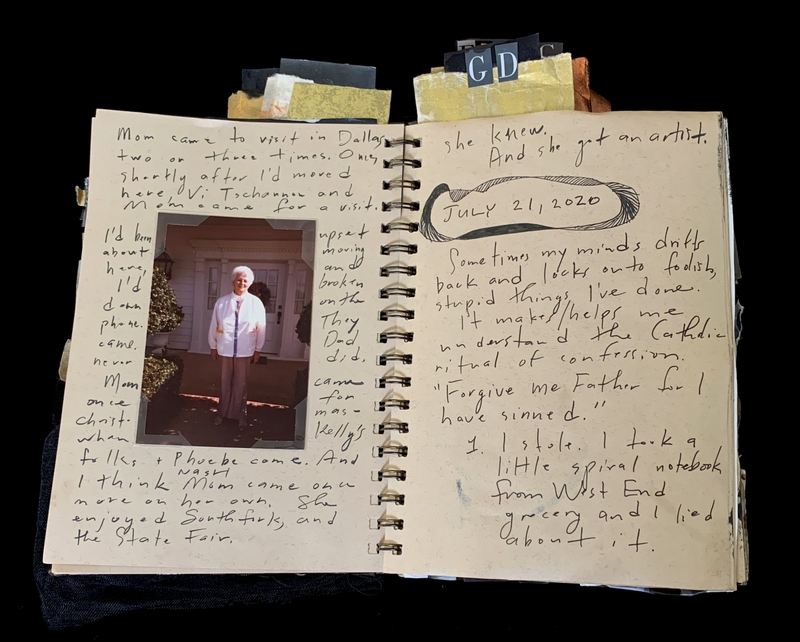 G D
Mom came to visit in Dallas
two or three times. Once,
shortly after I'd moved
here, Vi Tschannen and
Mom came for a visit.
I'd been upset
about moving
here, and
I'd broken
down on the
phone. They
came. Dad
never did.
Mom came
once for
christ- mas -
when Kelly's
folks + Phoebe came. And
Nash
I think Mom came once
more on her own. She
enjoyed Southfork, and
the State Fair.
she knew.
And she got an artist.
JULY 21, 2020
Sometimes my minds drifts
back and locks onto foolish,
stupid things I've done.
It makes/helps me
understand the Catholic
ritual of confession.
"Forgive me Father for I
have sinned."
1. I stole. I took a
little spiral notebook
from West End
grocery and I lied
about it.